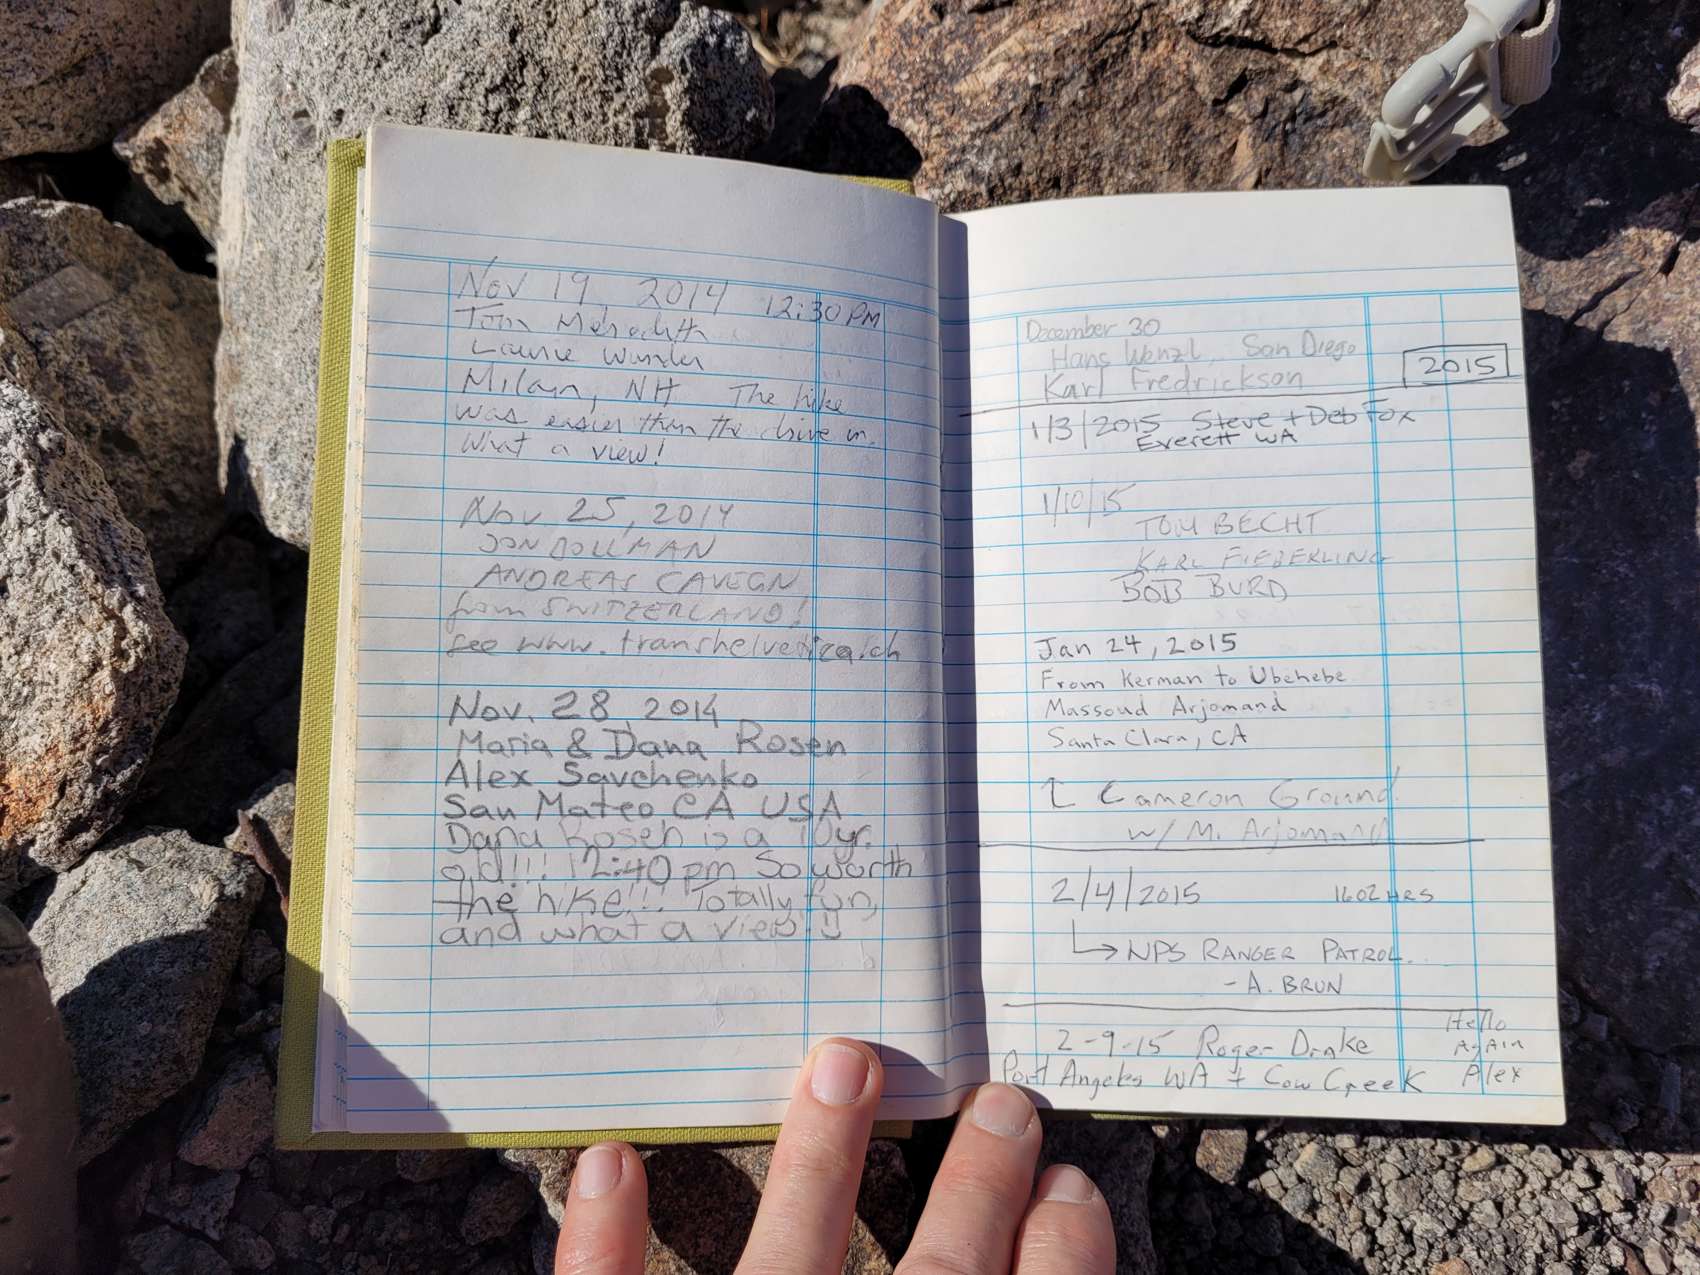 Nov 19, 2014 12:30 PM
Tom Meredith
Laurie
Milan, NH The hike
was easier than the drive in.
What a view!
Nov 25, 2014
JON DOLLMAN
ANDREAS CAVEGN
from SWITZERLAND!
see www.transhelvetica.ch
Nov. 28, 2014
Maria & Dana Rosen
Alex Savchenko
San Mateo CA USA
Dana Rosen is a 10yr.
old!!! 12:40 pm So worth
the hike!!! Totally fun,
and what a view!
December 30
Hans Wenzl, San Diego
Karl Fredrickson
2015
1/3/2015 Steve + Deb Fox
Everett WA
1/10/15
TOM BECHT
KARL FIEBERLING
BOB BURD
Jan 24, 2015
From Kerman to Ubehebe
Massoud Arjomand
Santa Clara, CA
Cameron Ground
w/ M. Arjomand
2/4/2015 1602 HRS
NPS RANGER PATROL.
- A. BRUN
2-9-15 Roger Drake
Port Angeles WA + Cow Creek
Hello
Again
Alex